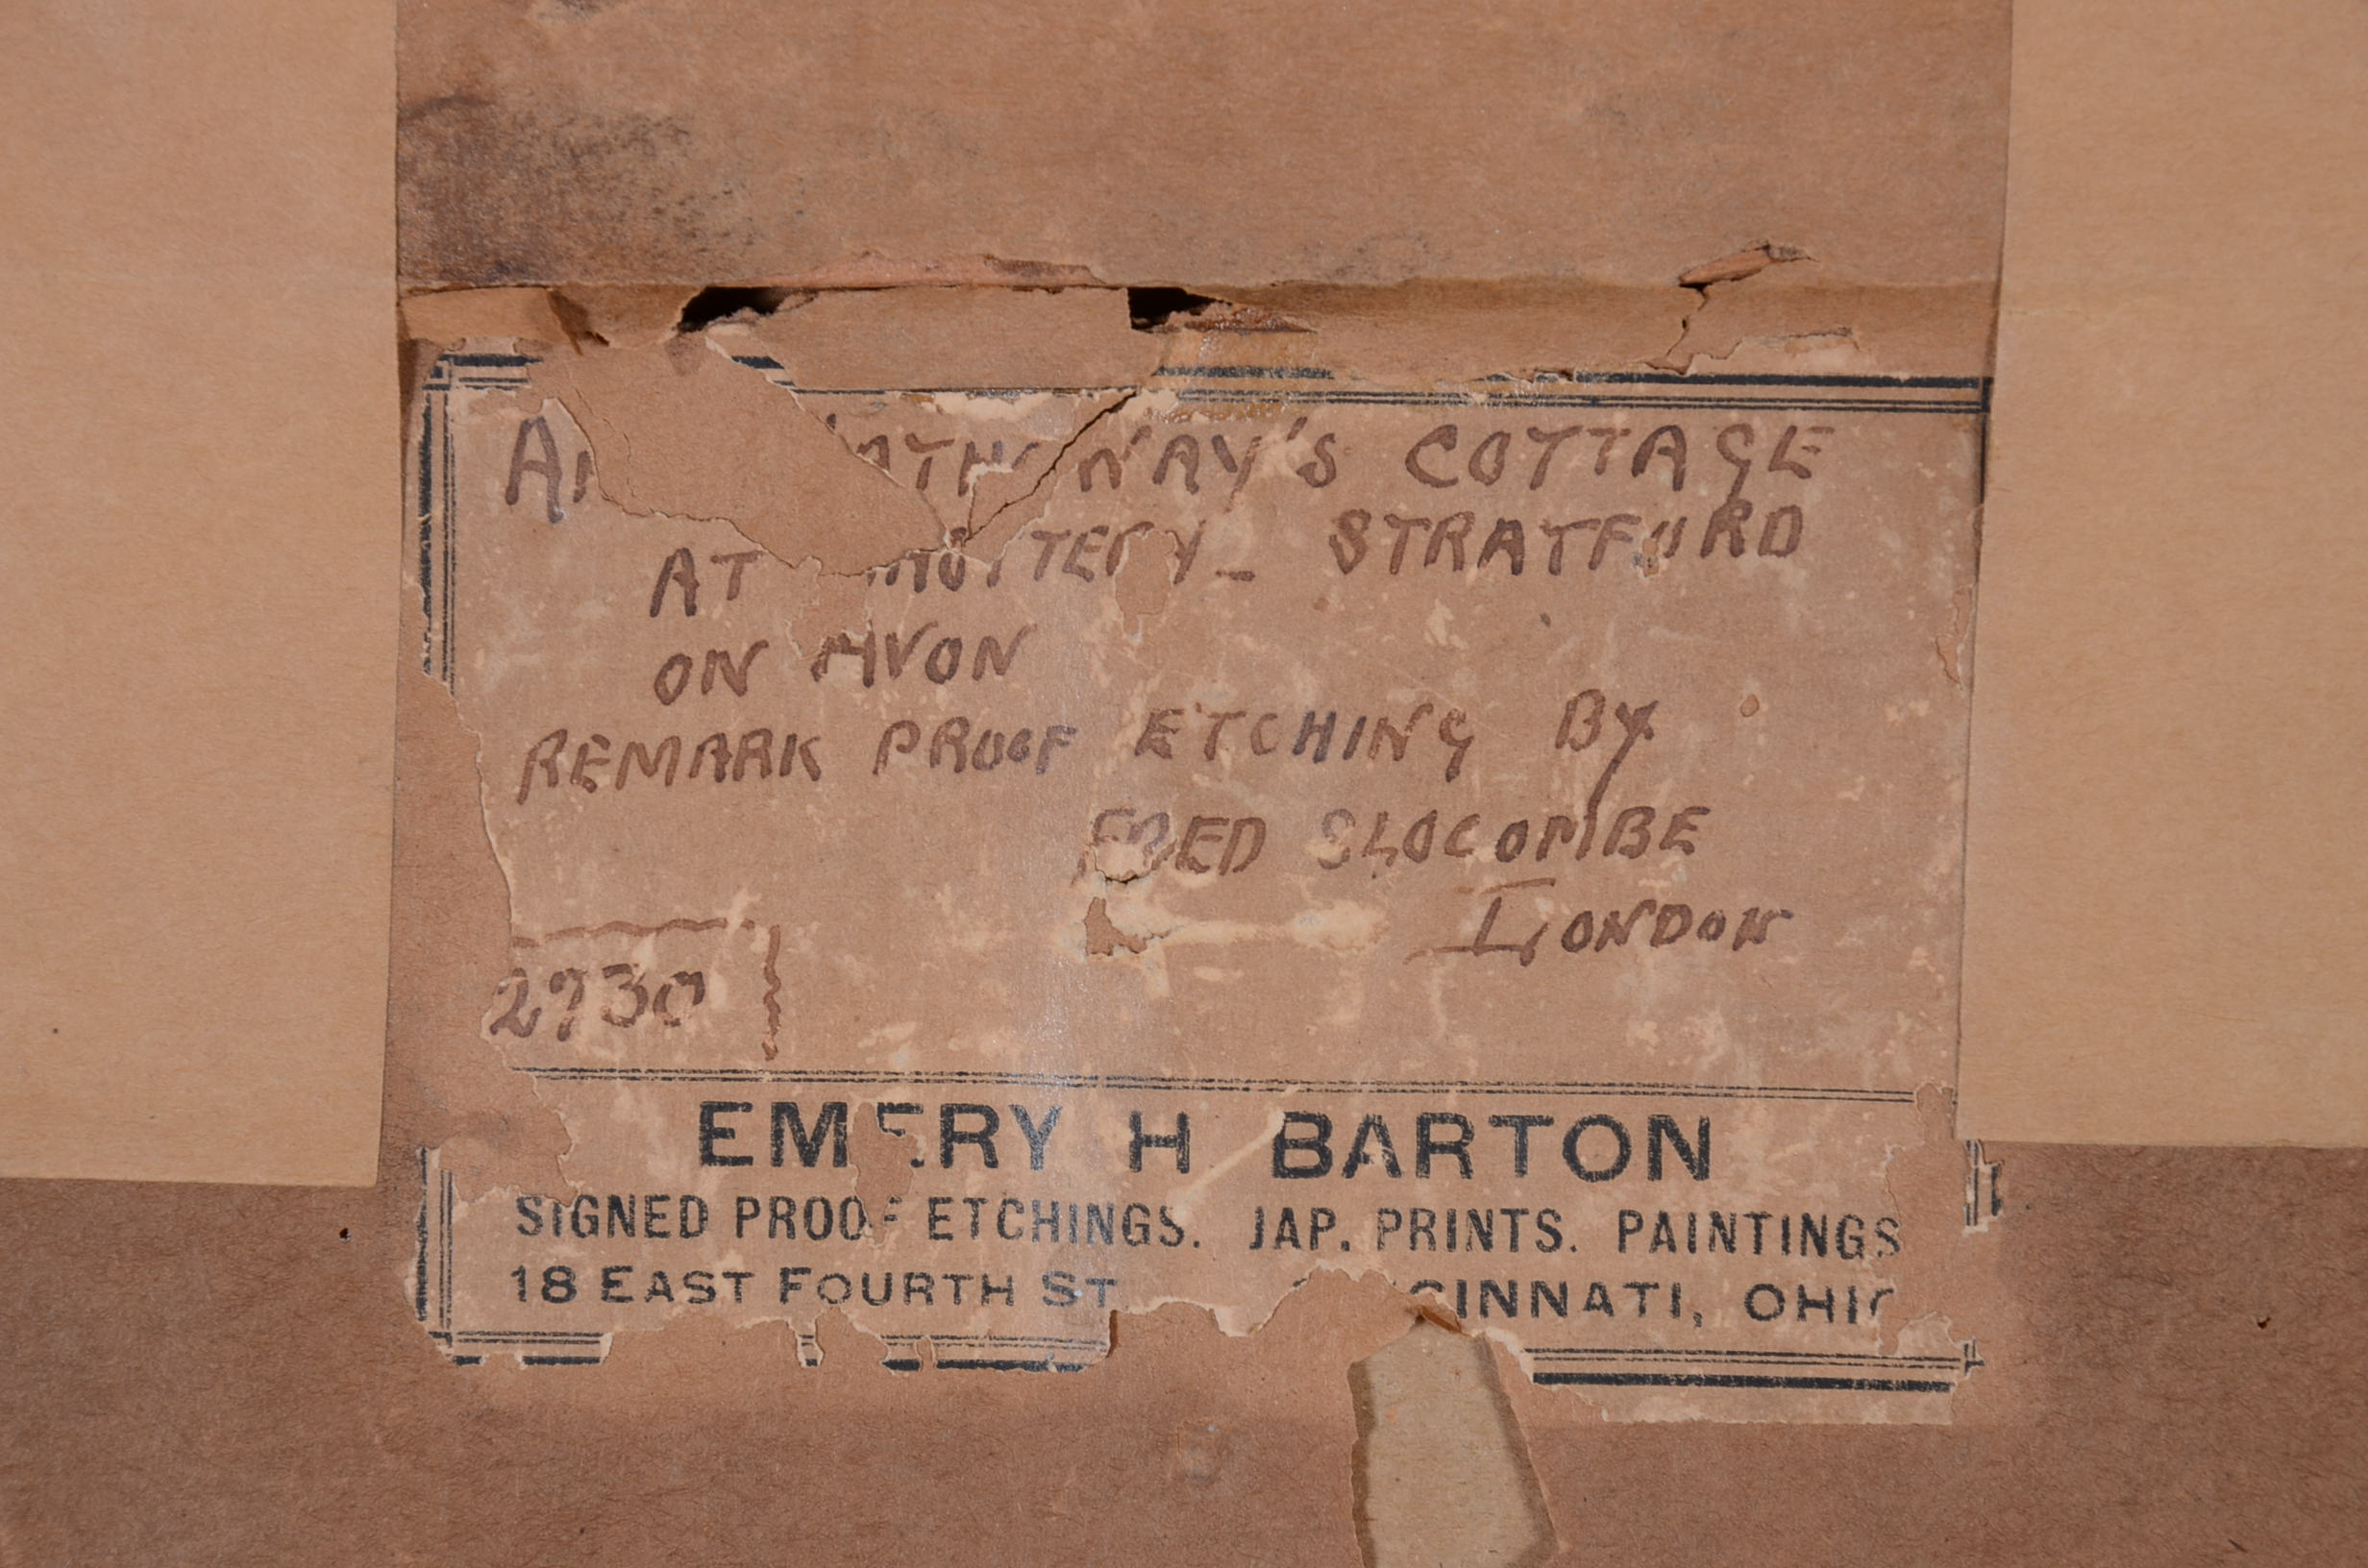 COTTAGE
AT STRATFORD
ON AVON
REMARK PROOF ETCHING BY
FRED SLOCOMBE
LONDON
2730
EMERY H BARTON
SIGNED PROOF ETCHINGS. JAP. PRINTS. PAINTINGS
18 EAST FOURTH ST CINCINNATI, OHIO